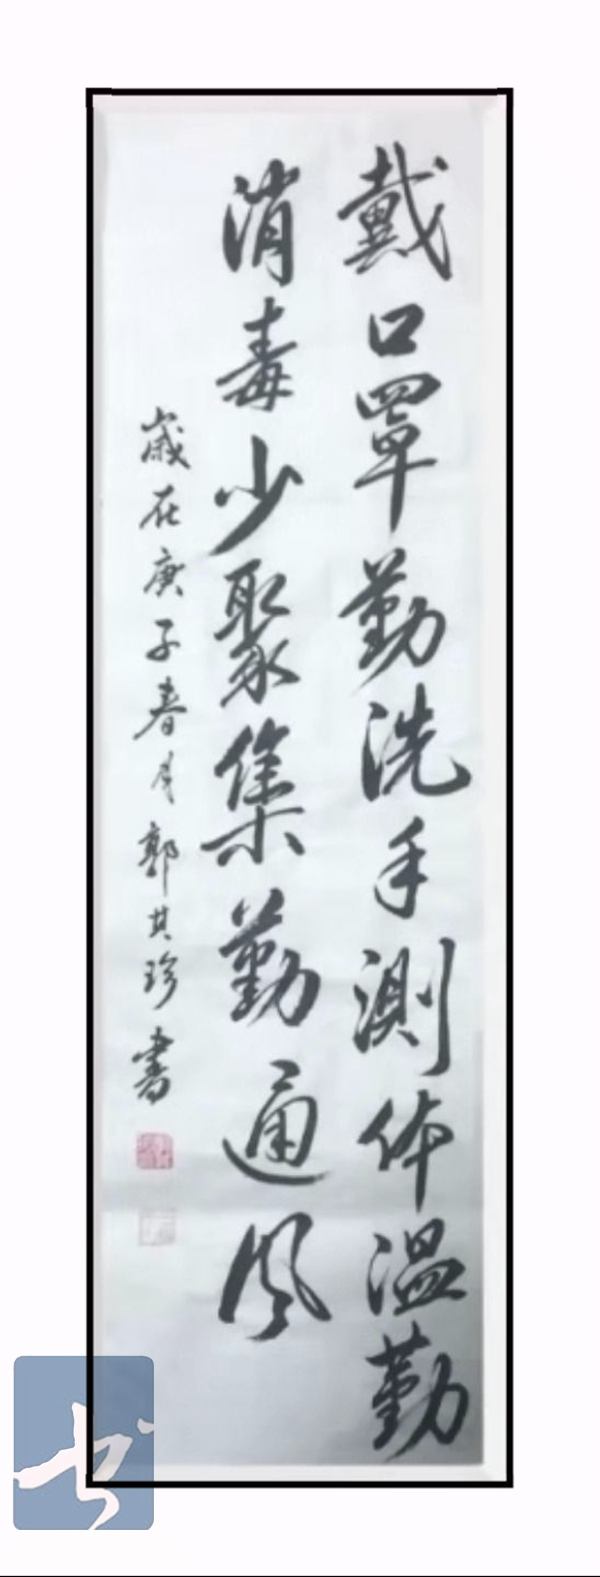 戴口罩勤洗手测体温勤
消毒少聚集勤通风
岁在庚子春月郭其珍书
书